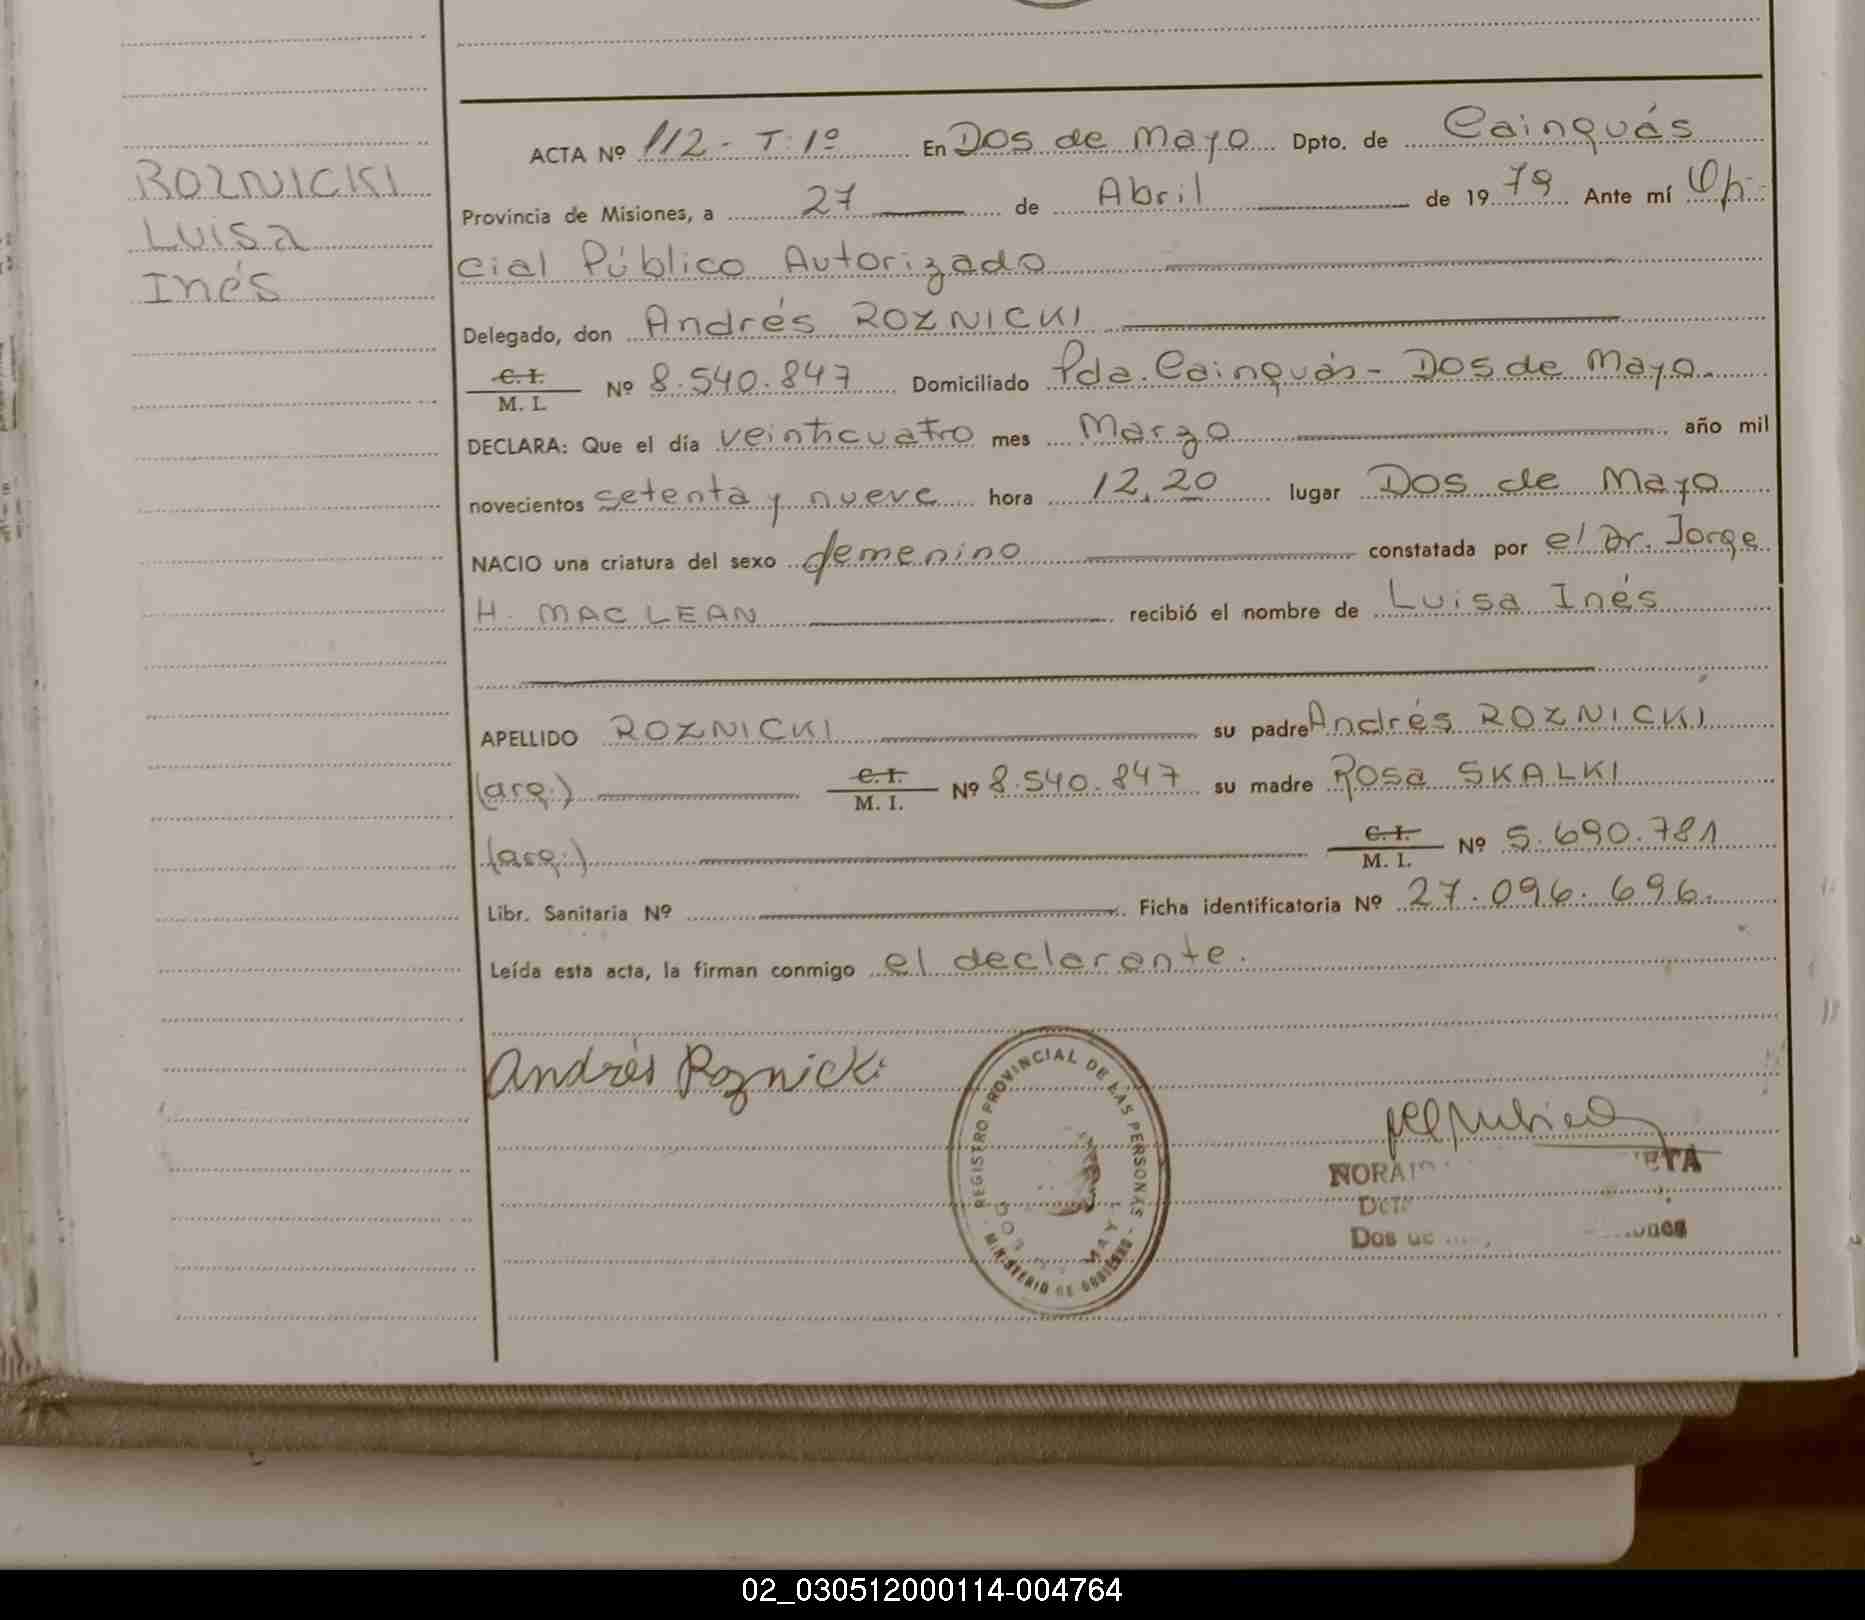 ROZNICKI
Luisa
Inés
ACTA Nº 112 - T: 1º En Dos de Mayo Dpto. de Cainguás
Provincia de Misiones, a 27 de Abril de 1979 Ante mí Ofi-
cial Público Autorizado
Delegado, don Andrés ROZNICKI
C. I.
M. I. Nº 8.540.847 Domiciliado Pda. Cainguás - Dos de Mayo.
DECLARA: Que el día veinticuatro mes Marzo año mil
novecientos setenta y nueve hora 12,20 lugar Dos de Mayo
NACIO una criatura del sexo femenino constatada por el Dr. Jorge
H. MAC LEAN recibió el nombre de Luisa Inés
APELLIDO ROZNICKI su padre Andrés ROZNICKI
(arg.) C. I.
M. I. Nº 8.540.847 su madre Rosa SKALKI
(arg.) C. I.
M. I. Nº 5.690.781
Libr. Sanitaria Nº Ficha identificatoria Nº 27.096.696.
Leída esta acta, la firman conmigo el declarante.
Andrés Roznicki
REGISTRO PROVINCIAL DE LAS PERSONAS
MINISTERIO DE GOBIERNO
Dos
02_030512000114-004764